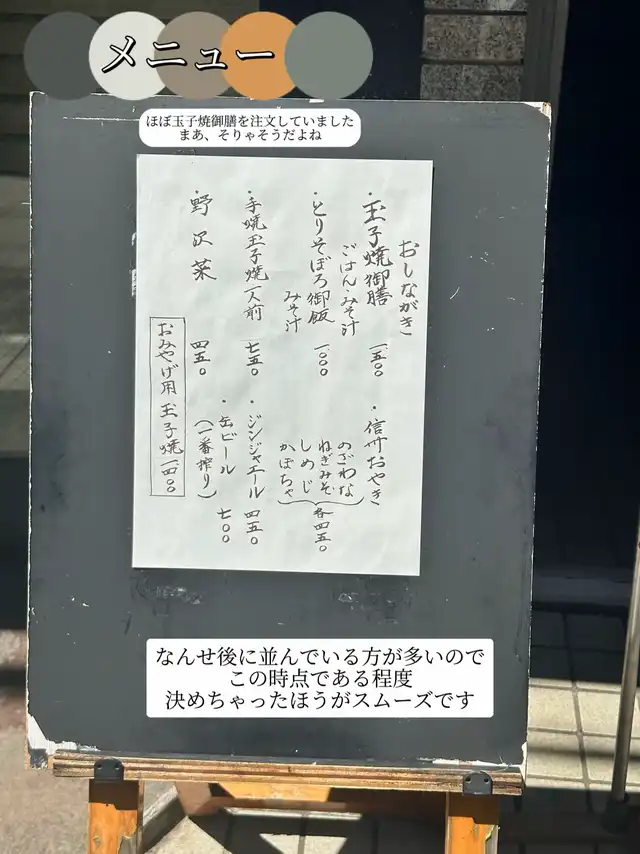 メニュー
ほぼ玉子焼御膳を注文していました
まあ、そりゃそうだよね
おしながき
・玉子焼御膳 一、五〇〇
ごはん・みそ汁
・とりそぼろ御飯 一、〇〇〇
みそ汁
・手焼玉子焼一人前 七五〇
・野沢菜 四五〇
・信州おやき
のざわな
ねぎみそ
しめじ
かぼちゃ
各四五〇
・ジンジャエール 四五〇
・缶ビール 七〇〇
(一番搾り)
おみやげ用玉子焼 一、四〇〇
なんせ後に並んでいる方が多いので
この時点である程度
決めちゃったほうがスムーズです